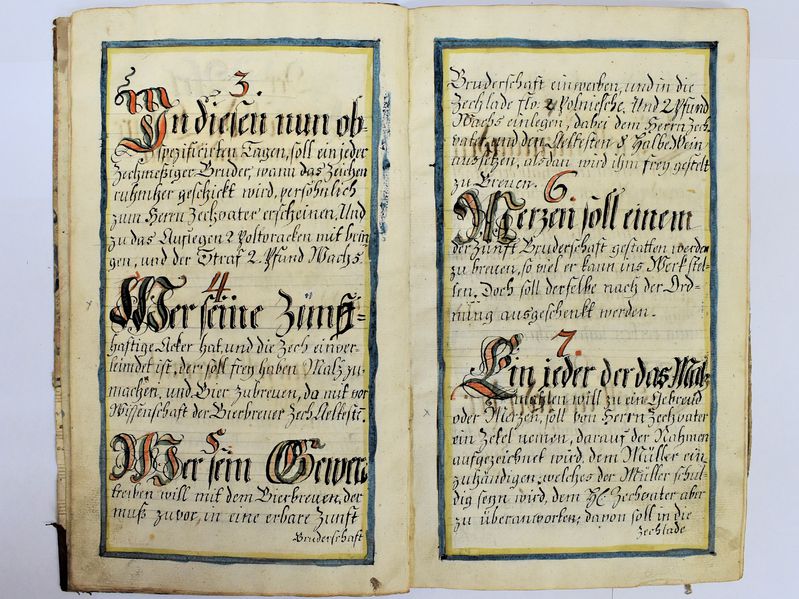 3.
In diesen nun ob-
spezificirten Tagen, soll ein jeder
Zechmeßiger Bruder, wann das Zeichen
geschickt wird, persöhnlich
zum Herrn Zechvater erscheinen, Und
zu das Auflegen 2 Poltoracken mit brin
gen, und der Straf 2. Pfund Wachs.
4
Wer seine Zünf-
haftige Äcker hat, und die Zech einver-
leimdet ist, der soll frey haben Maltz zu
machen, und Bier zubreuen, da mit vor
Wissenschaft der Bierbreuer Zech Aelteste.
5.
Wer sein Gewer
treiben will mit dem Bierbreuen, der
muß zuvor, in eine erbare Zunft
Bruderschaft
Bruderschaft einwerben, und in die
Zechlade flo. 2 Polnische. Und 2 Pfund
Wachs einlegen, dabei dem Herrn Zech
vater und den Aeltesten 8 Halbe Wein
aussetzen, als dan wird ihm frey gestelt
zu Breuen.
6
Merzen soll einem
der Zunft Bruderschaft gestatten werden
zu breuen, so viel er kann ins Werk stel-
len. Doch soll derselbe nach der Ord-
nung ausgeschenkt werden.
7.
Ein jeder der das Malz
mahlen will zu ein Gebreud
oder Merzen, soll von Herrn Zechvater
ein Zetel nemen, darauf der Nahmen
aufgezeichnet wird, dem Müller ein
zuhändigen, welches der Müller schul-
dig seyn wird, dem H. Zechvater aber
zu überantworten; davon soll in die
Zechlade